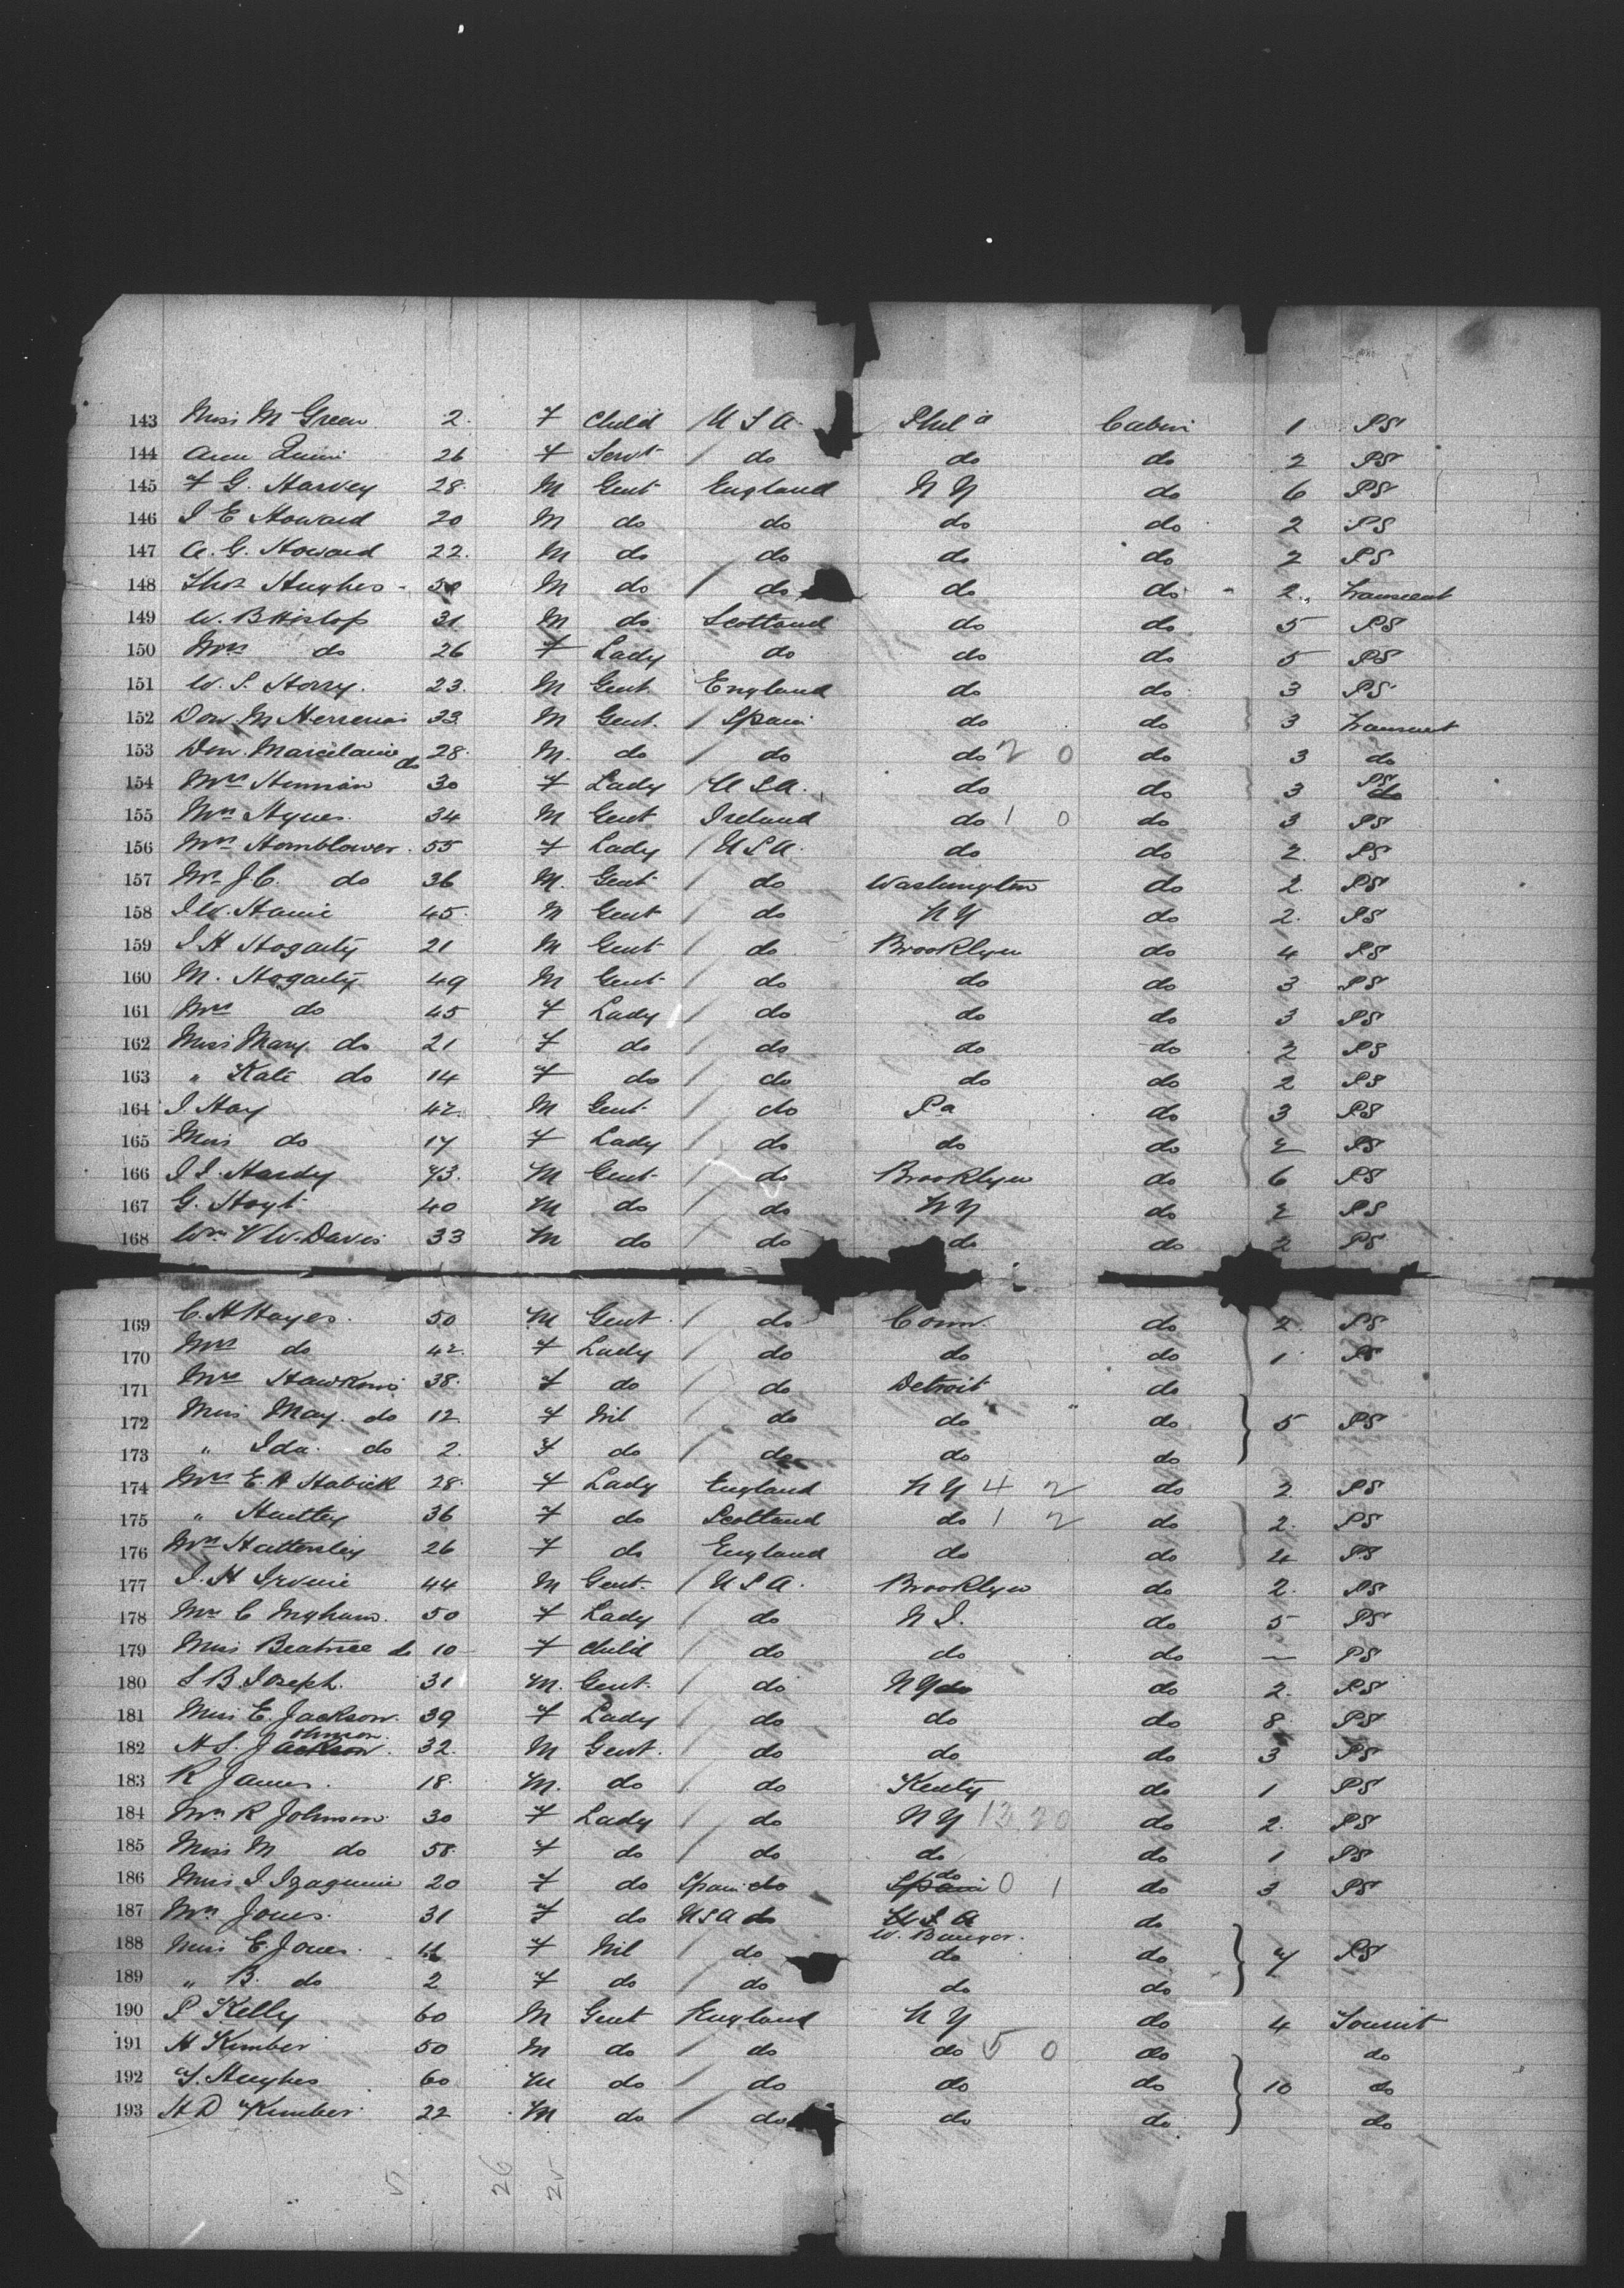 143 Miss M Green 2. F Child U S A. Phil a Cabin 1 PS
144 Ann Quinn 26 F Servt do do do 2 PS
145 F G. Harvey 28. M Gent England N Y do 6 PS
146 J E Howard 20 M do do do do 2 PS
147 A. G. Howard 22. M do do do do 2 PS
148 Thos Hughes 50 M do do do do 2 Transient
149 W. B Hislop 31 M do Scotland do do 5 PS
150 Mrs do 26 F Lady do do do 5 PS
151 W. S. Horry. 23. M Gent England do do 3 PS
152 Don M Herreros 33 M Gent. Spain do do 3 Transient
153 Don. Marcelanie do 28. M. do do do 2 0 do 3 do
154 Mrs 30 F Lady U S A. do do 3 PS do
155 Mr Hynes. 34 M Gent Ireland do 1 0 do 3 PS
156 Mrs Hornblower. 55 F Lady U S A. do do 2. PS
157 Mr J C. do 36 M. Gent do Washington do 2. PS
158 J W. 45. M Gent do N Y do 2. PS
159 J H Hogarty 21 M Gent do Brooklyn do 4 PS
160 M. Hogarty 49 M Gent do do do 3 PS
161 Mrs do 45 F Lady do do do 3 PS
162 Miss Mary do 21 F do do do do 2 PS
163 " Kate do 14 F do do do do 2 PS
164 J Hay 42. M Gent. do Pa do 3 PS
165 Miss do 17 F Lady do do do 2 PS
166 J. J. Hardy 43. M Gent do Brooklyn do 6 PS
167 G. Hoyt 40 M do do N Y do 2 PS
168 Wm V W. Davis 33 M do do do do 2 PS
169 C. H Hayes. 50 M Gent. do Conn. do 2. PS
170 Mrs do 42. F Lady do do do 1 PS
171 Mrs Hawkins 38. F do do Detroit do
172 Miss May. do 12 F Nil do do do 5 PS
173 " Ida. do 2. F do do do do
174 Mrs E. H Habick 28. F Lady England N Y 4 2 do 2. PS
175 " 36 F do Scotland do 1 2 do 2. PS
176 Mrs Hattersley 26 F do England do do 4 PS
177 J. H Irvine 44 M Gent. U S A. Brooklyn do 2. PS
178 Mrs C Ingham. 50 F Lady do N J. do 5 PS
179 Miss Beatrice do 10 F Child do do do — PS
180 S B Joseph. 31 M. Gent. do N Y do do 2. PS
181 Miss E. Jackson. 39 F Lady do do do 8. PS
182 H S. Jackson ohnson. 32. M Gent. do do do 3 PS
183 R James. 18. M. do do Kenty do 1 PS
184 Mrs R Johnson 30 F Lady do N Y 13 20 do 2. PS
185 Miss M do 58. F do do do do 1 PS
186 Miss J. Izaguirre 20 F do Spain do Spain do 0 1 do 3 PS
187 Mrs Jones. 31 F do U S A do U S A do
W. Bangor.
188 Miss E. Jones. 11 F Nil do do do 7 PS
189 " B. do 2 F do do do do
190 P Kelly 60 M Gent England N Y do 4 Tourist
191 H Kimber 50 M do do do 5 0 do do
192 T. Hughes 60 M do do do do 10 do
193 H D Kimber 22 M do do do do do
5 26 25